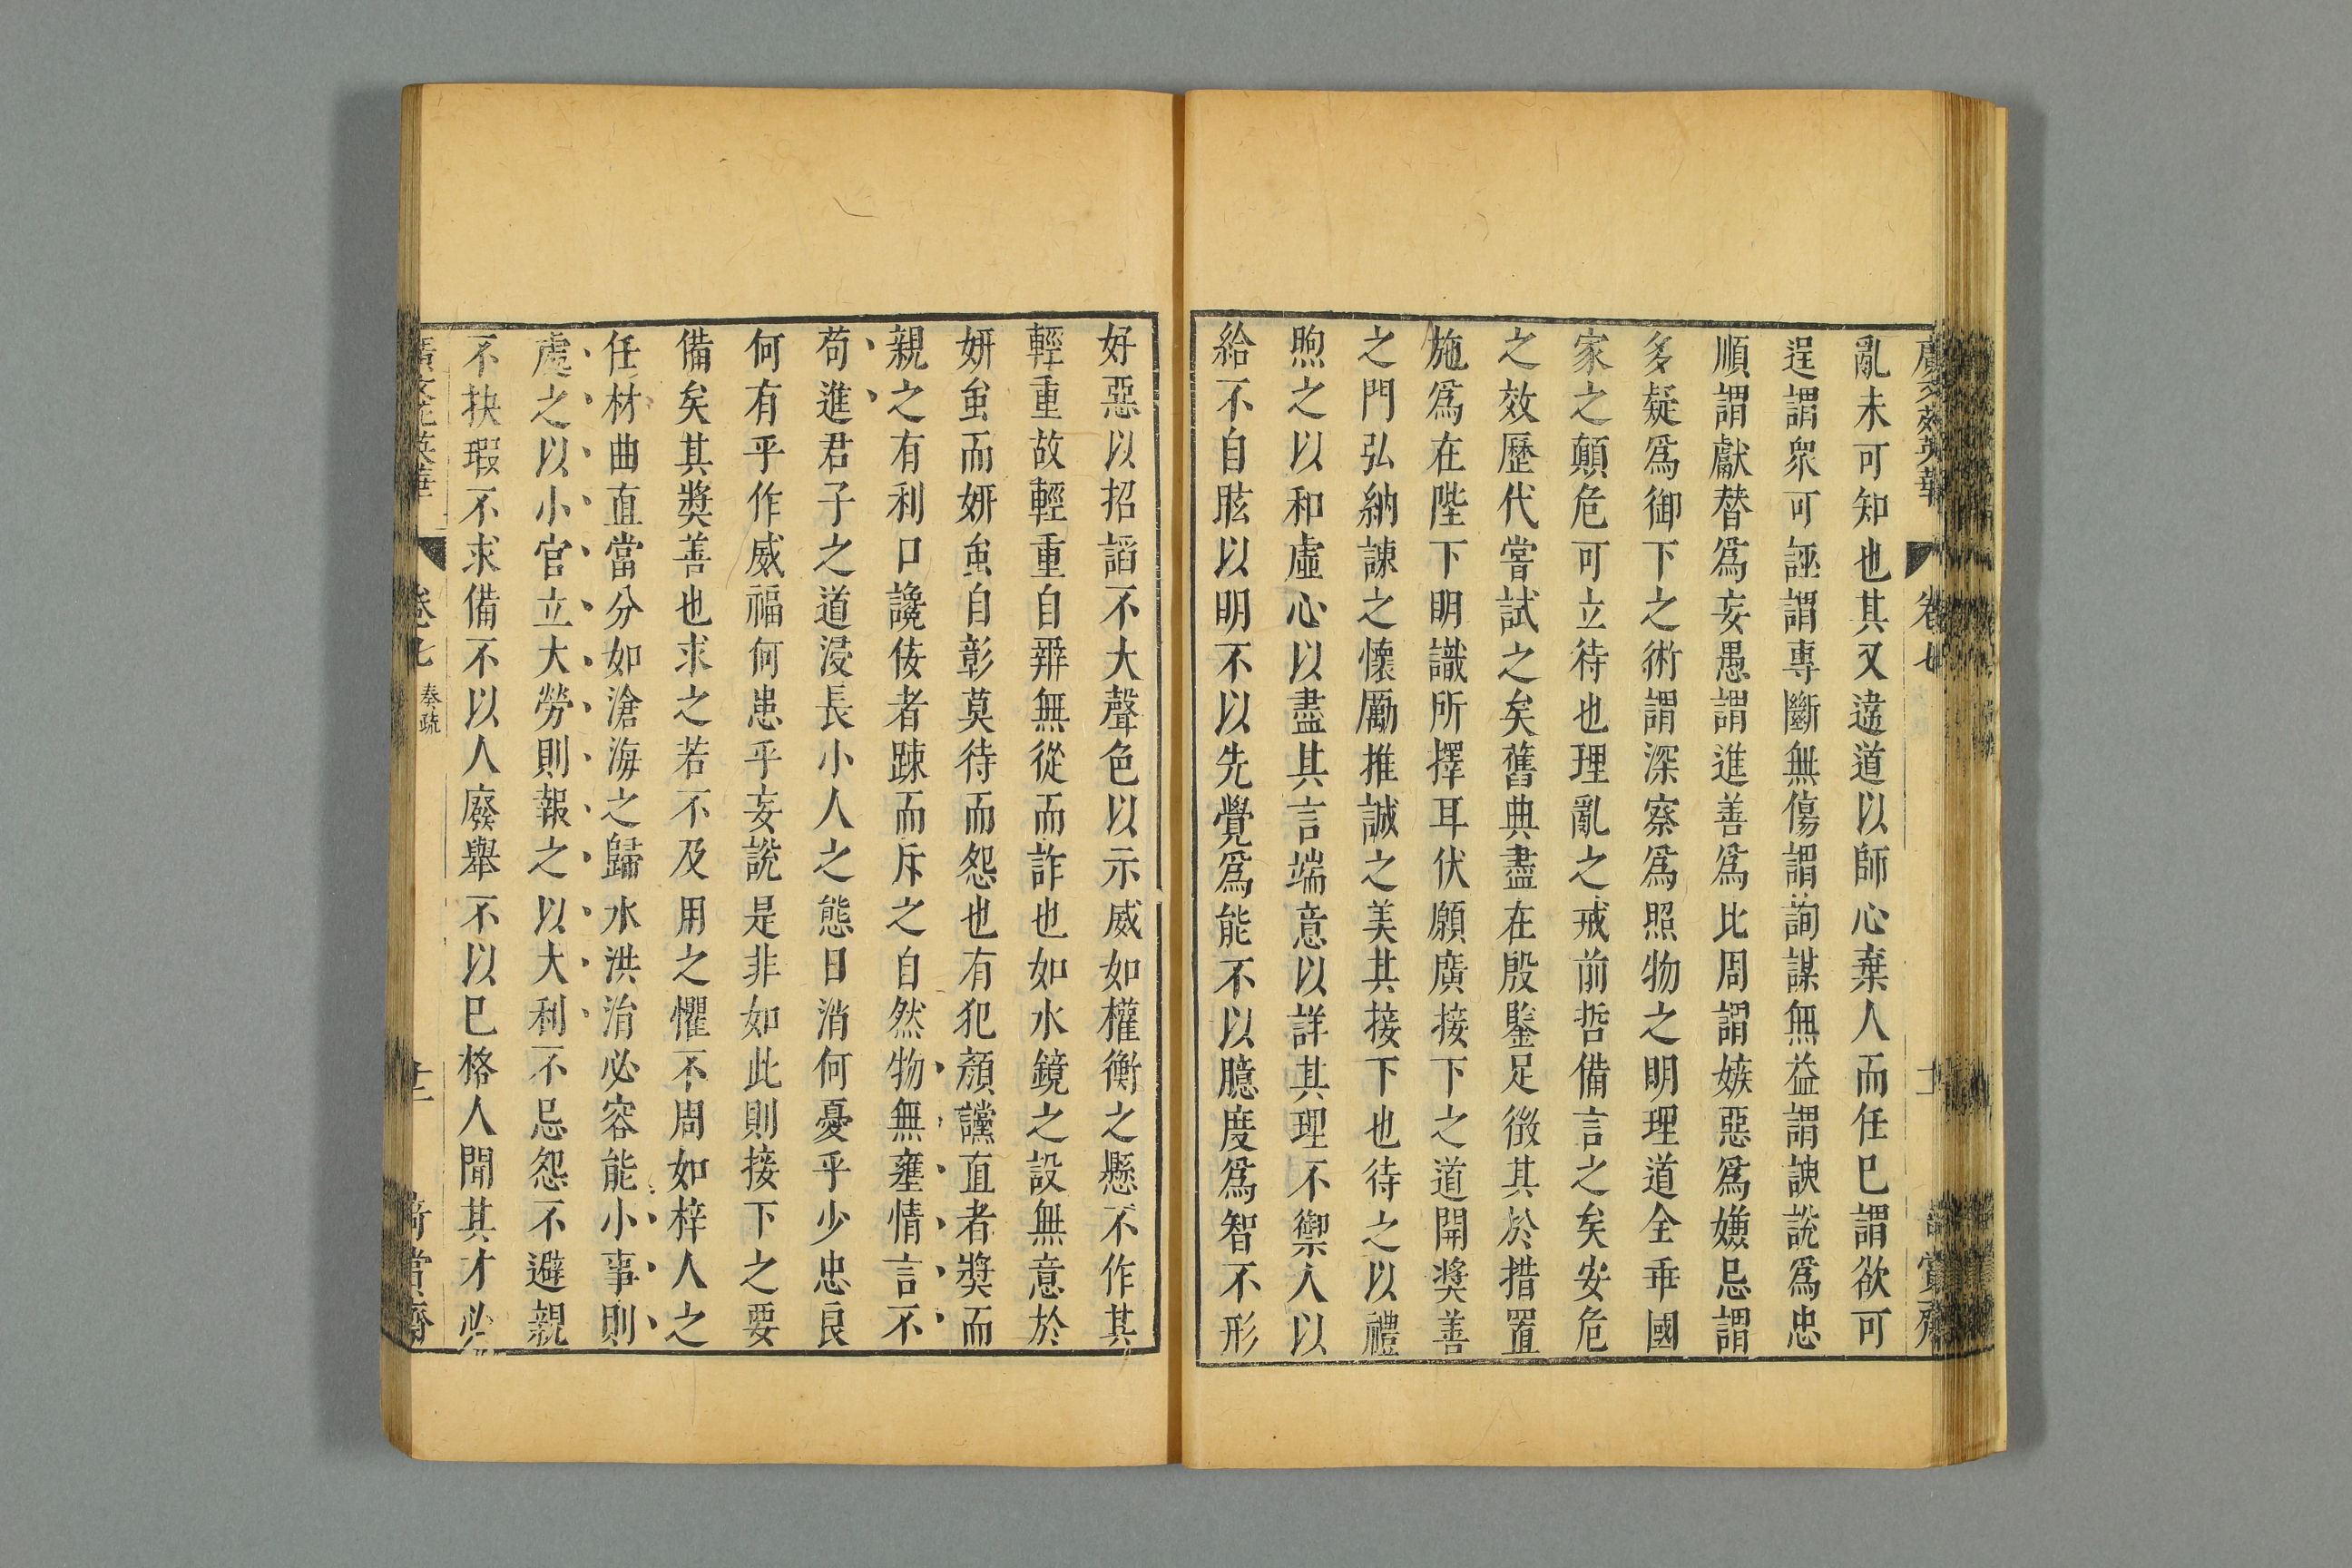 廣文苑英華 卷七
亂未可知也其又違道以師心棄人而任已謂欲可
逞謂衆可誣謂專斷無傷謂詢謀無益謂諛說爲忠
順謂獻替爲妄愚謂進善爲比周謂嫉惡爲嫌忌謂
多疑爲御下之術謂深察爲照物之明理道全乖國
家之顛危可立待也理亂之戒前哲備言之矣安危
之效歷代嘗試之矣舊典盡在殷鑒足徴其於措置
施爲在陛下明識所擇耳伏願廣接下之道開奬善
之門弘納諫之懷勵推誠之美其接下也待之以禮
煦之以和虛心以盡其言端意以詳其理不禦人以
給不自眩以明不以先覺爲能不以臆度爲智不形
好惡以招謟不大聲色以示威如權衡之懸不作其
輕重故輕重自辨無從而詐也如水鏡之設無意於
妍蚩而妍蚩自彰莫待而怨也有犯顏讜直者奬而
親之有利口讒侫者踈而斥之自然物無壅情言不
苟進君子之道浸長小人之態日消何憂乎少忠良
何有乎作威福何患乎妄說是非如此則接下之要
備矣其奬善也求之若不及用之懼不周如梓人之
任材曲直當分如滄海之歸水洪涓必容能小事則
處之以小官立大勞則報之以大利不忌怨不避親
不抉瑕不求備不以人廢舉不以已格人聞其才必
廣文苑英華 卷七 奏疏